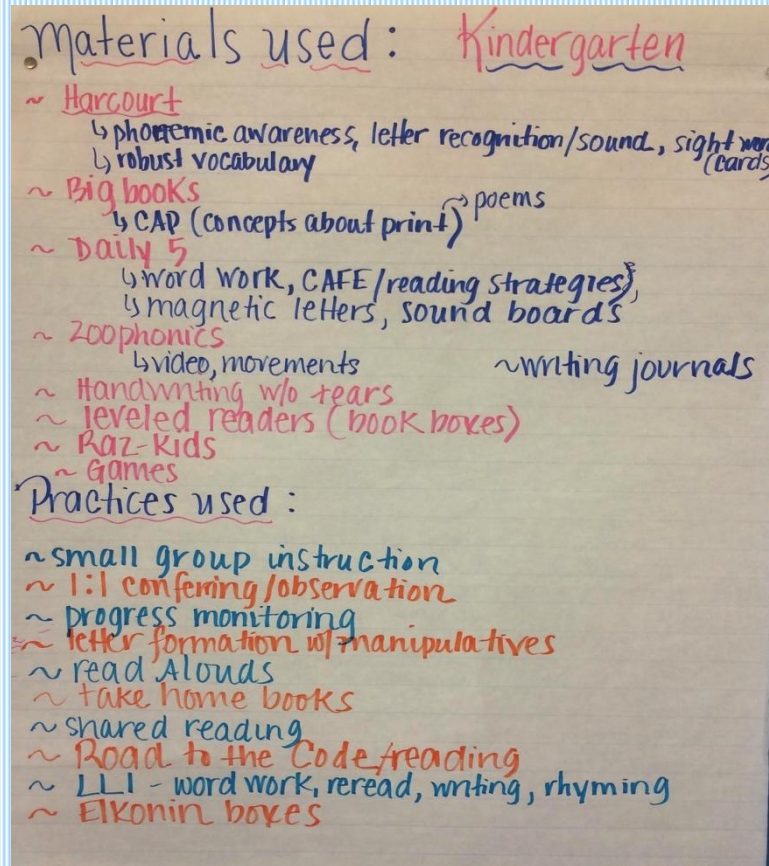 Materials used: Kindergarten
~ Harcourt
↳ phonemic awareness, letter recognition/sound, sight wor
(cards)
↳ robust vocabulary
~ Big books
↳ CAP (concepts about print) → poems
~ Daily 5
↳ word work, CAFE/reading strategies,
↳ magnetic letters, sound boards
~ Zoophonics
↳ video, movements ~writing journals
~ Handwriting w/o tears
~ leveled readers (book boxes)
~ Raz-Kids
~ Games
Practices used:
~small group instruction
~ 1:1 conferring/observation
~ progress monitoring
~ letter formation w/manipulatives
~ read Alouds
~ take home books
~ shared reading
~ Road to the Code/reading
~ LLI - word work, reread, writing, rhyming
~ Elkonin boxes